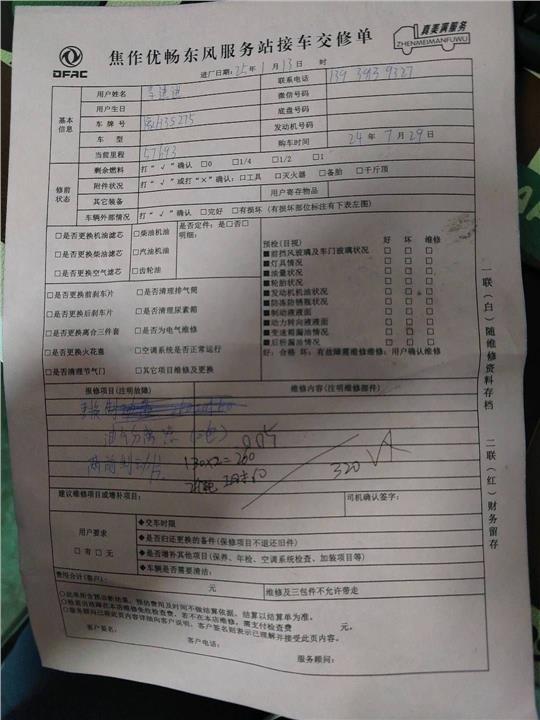 DFAC
焦作优畅东风服务站接车交修单
真美满服务
ZHENMEIMANFUWU
进厂日期: 25年 1月 13日 时
基本信息
用户姓名
联系电话 139 3939 9327
用户生日
微信号码
车牌号
底盘号码
车型
发动机号码
当前里程 57693
购车时间 24年 7月 29日
修前状态
剩余燃料 打“√”确认 □0 □1/4 □1/2 □1
附件状况 打“√”或打“×”确认: □工具 □灭火器 □备胎 □千斤顶
其它装备
用户寄存物品
车辆外部情况 打“√”确认 □完好 □有损坏(有损坏部位标注有下表左图)
□是否更换机油滤芯 □柴油机油
□是否更换柴油滤芯 □汽油机油
□是否更换空气滤芯 □齿轮油
是否定件: 是□否□
明细:
□是否更换前刹车片 □是否清理排气筒
□是否更换后刹车片 □是否清理尿素箱
□是否更换离合三件套 □是否为电气维修
□是否更换火花塞 □空调系统是否正常运行
□是否清理节气门 □其它项目维修及更换
预检(目视) 好 坏 维修
■前挡风玻璃及车门玻璃状况 □ □ □
■灯具情况 □ □ □
■油量状况 □ □ □
■轮胎状况 □ □ □
■发动机机油情况 □ □ □
■防冻防锈瓶状况 □ □ □
■制动液液面 □ □ □
■动力转向液液面 □ □ □
■变速箱漏油情况 □ □ □
■后桥漏油情况 □ □ □
好: 合格 坏: 有故障需维修维修: 用户确认维修
报修项目(注明故障)
维修内容(注明维修部件)
130×2=260
320
建议维修项目或增补项目:
司机确认签字:
用户要求
□有□无
◆交车时限
◆是否归还更换的备件(保修项目不退还旧件)
◆是否增补其他项目(保养、年检、空调系统检查、加装项目等)
◆车辆是否需要清洁:
费用合计(客户): 元
维修及三包件不允许带走
○此单所含预诊断结果、预估费用及时间不做结算依据、结算以结算单为准。
○检查出故障在本店维修免收检查费, 若不在本店维修, 需支付检查费 元。
○服务顾问已将此页内容详细向客户说明、客户签名则表示已理解并接受此页内容。
客户签名: 客户电话: 服务顾问:
一联(白)随维修资料存档
二联(红)财务留存